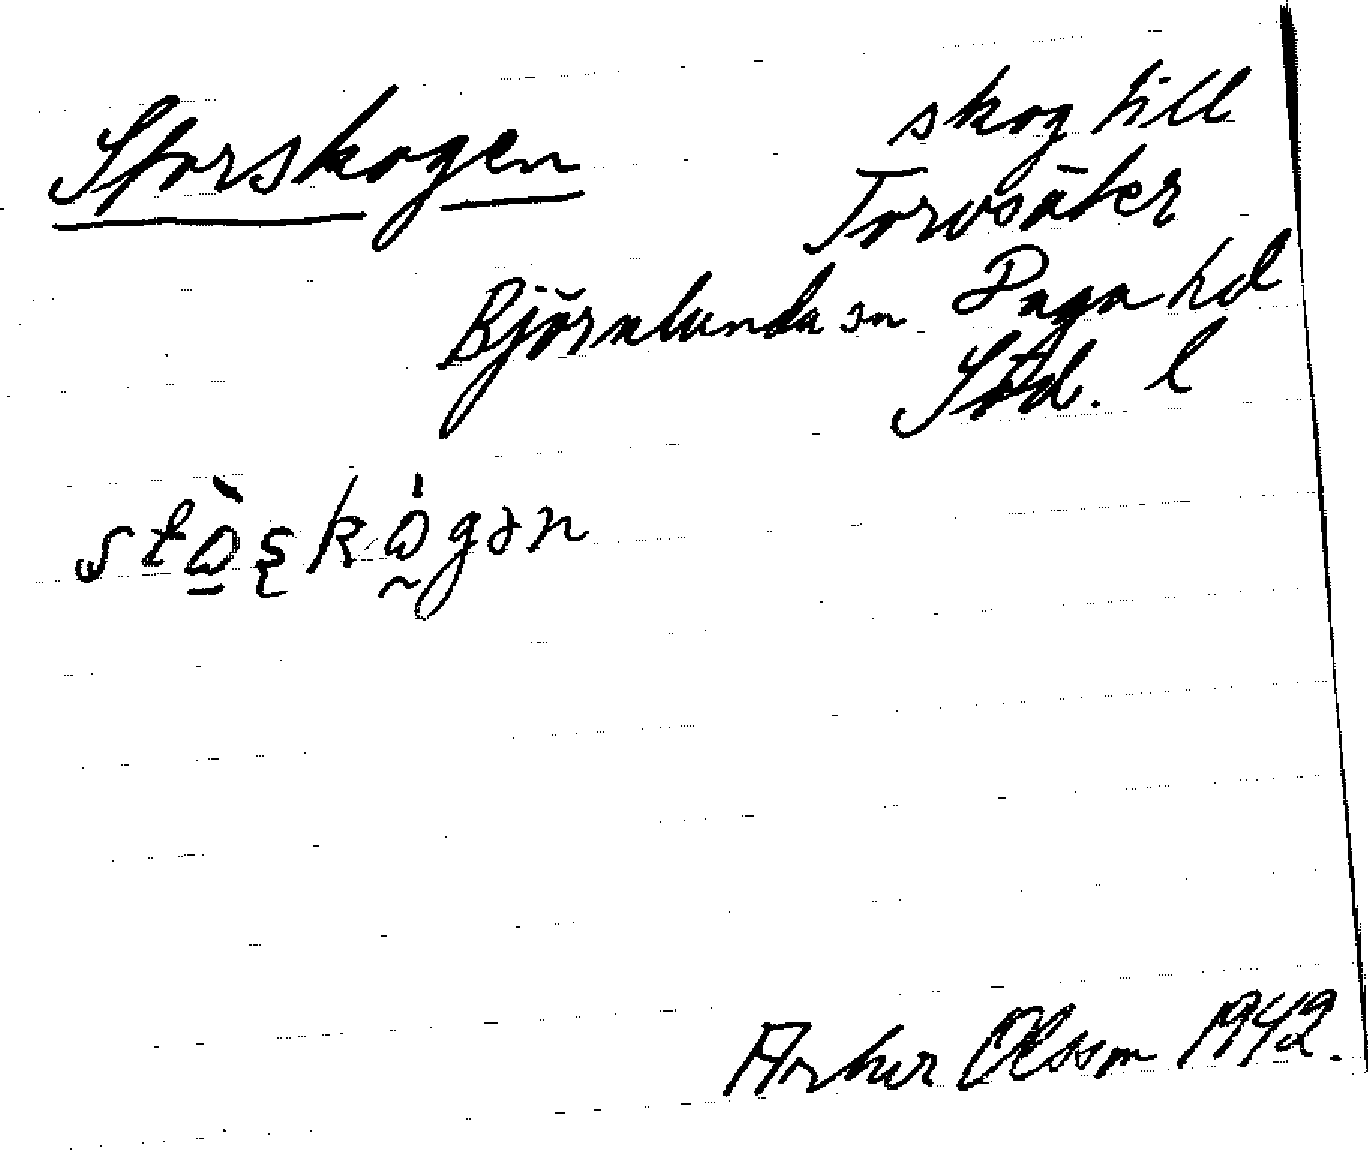 Storskogen
skog till
Torvsäter
Björnlunda sn Daga hd
Söd. l
Arthur Olsson 1942.